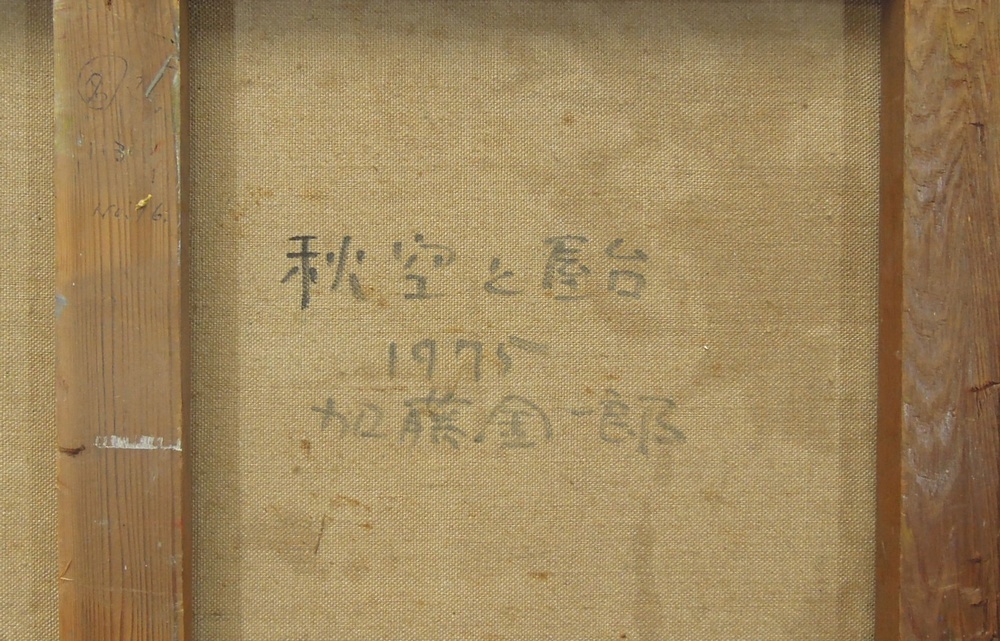 秋空と屋台
1975
加藤金一郎